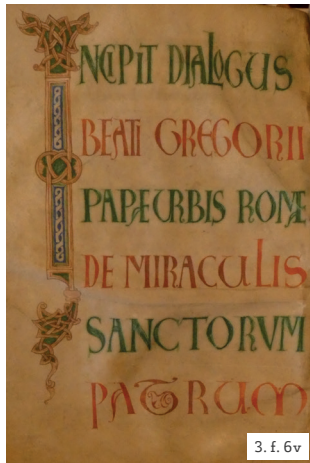 INCIPIT DIALOGUS
BEATI GREGORII
PAPAE URBIS ROME
DE MIRACULIS
SANCTORVM
PATRUM
3. f. 6v